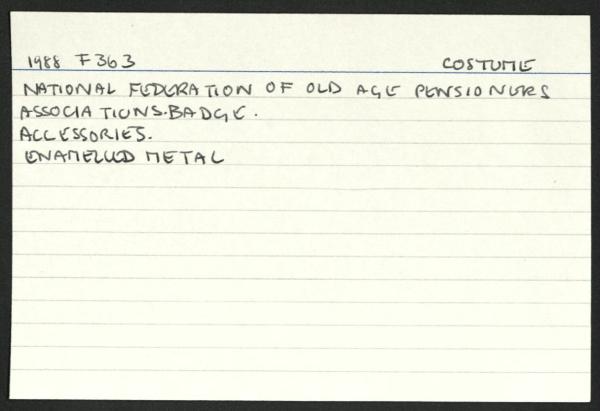 1988 F363 COSTUME
NATIONAL FEDERATION OF OLD AGE PENSIONERS
ASSOCIATIONS.BADGE.
ACCESSORIES.
ENAMELLED METAL